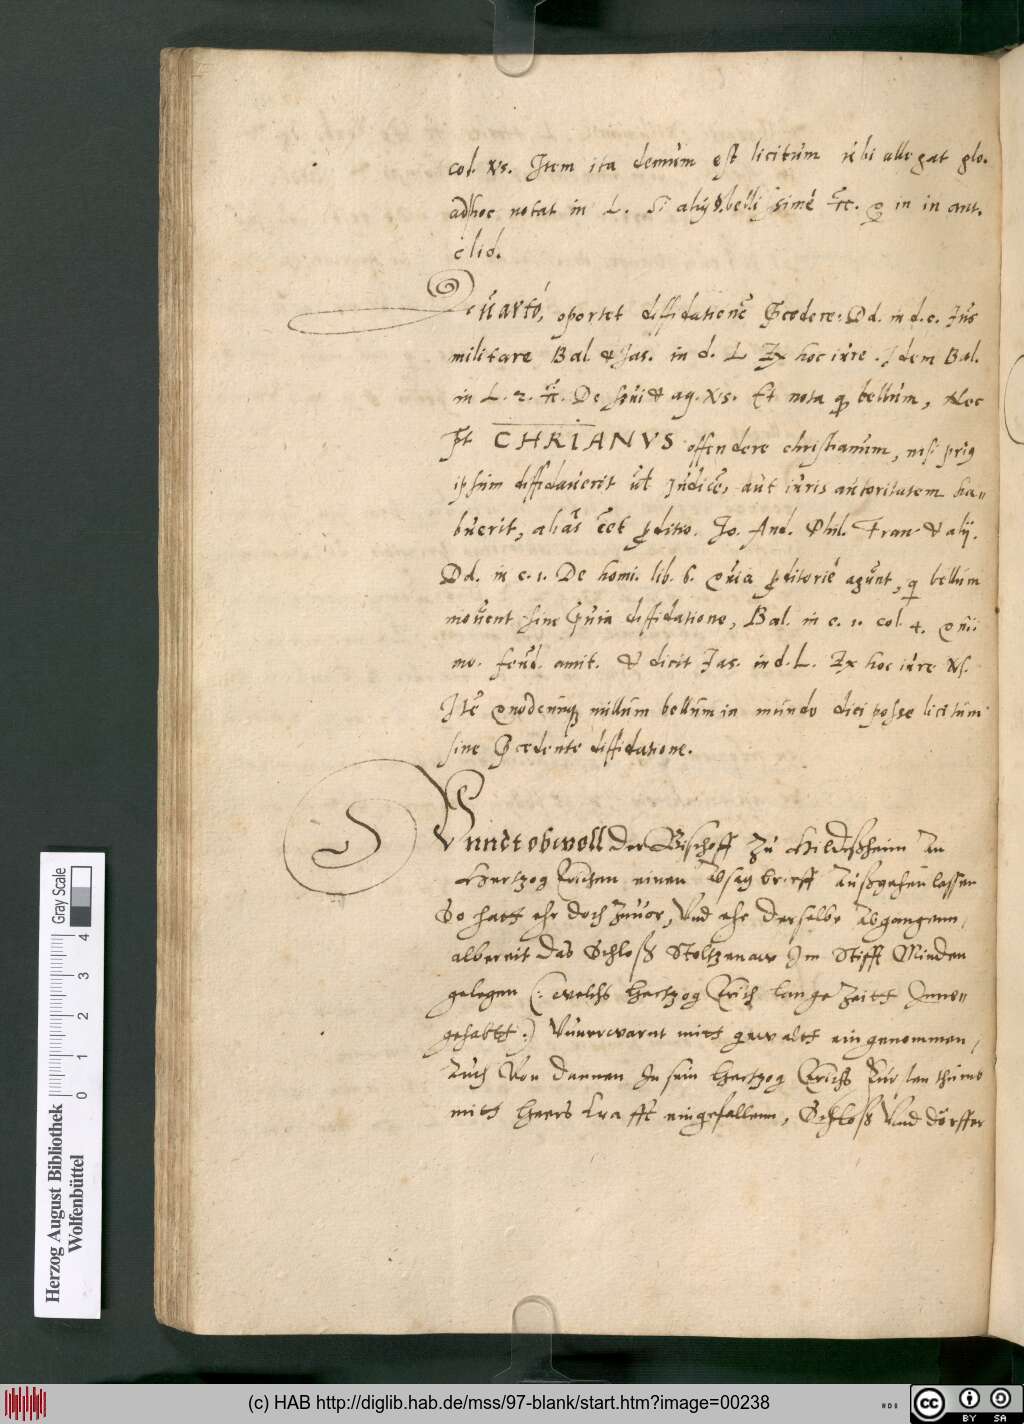 col. Xs. Item ita demum est licitum ubi allegat glo.
adhoc notat in L. Si alijs. bellissime ff. in in aut.
elid.
Quarto, oportet diffidationē p̄cedere: Dd. in d. c. Jus
militare Bal & Jas. in d. L. Ex hoc iure. Idem Bal.
in L. 2. ff. De & aq. Xs. Et nota q̄ bellum, Nec
p̄t CHRIANVS offendere christianum, nisi prius
ipsum diffidauerit ut̄ judice, aut iuris autoritatem ha=
buerit, alias eet p̱ditio. Jo. And. Phil. Fran. & alij.
Dd. in c. 1. De homi. lib. 6. Quia p̱ditorie agunt, q bellum
mouent sine p̄uia diffidatione, Bal. in c. 1. col. 4. Qui
mo. feud. amit. & dicit Jas. in d. L. Ex hoc iure Xs.
Itē Quodcunq nullum bellum in mundo dici posse licitum
sine p̄cedente diffidatione.
Vnndt obwoll Der Bischoff zu Hildeßheim An
Hertzog Erichen einen Absag brieff Außgehen lassen
So hatt ehr doch zuuor, Vnd ehe derselbe Abgangenn,
albereit das Schloß Stoltzenaw Im Stifft Minden
gelegen (: welchs Hertzog Erich lange Zeitt Inne=
gehabtt :) Vnuerwarnt mitt gewaltt eingenommen,
Auch Von dannen In sein Hertzog Erichs Fürstenthumb
mitt Heers krafft eingefallenn, Schloß Vnd dörffer
Herzog August Bibliothek
Wolfenbüttel
0 1 2 3 4
Gray Scale
(c) HAB http://diglib.hab.de/mss/97-blank/start.htm?image=00238
cc BY SA